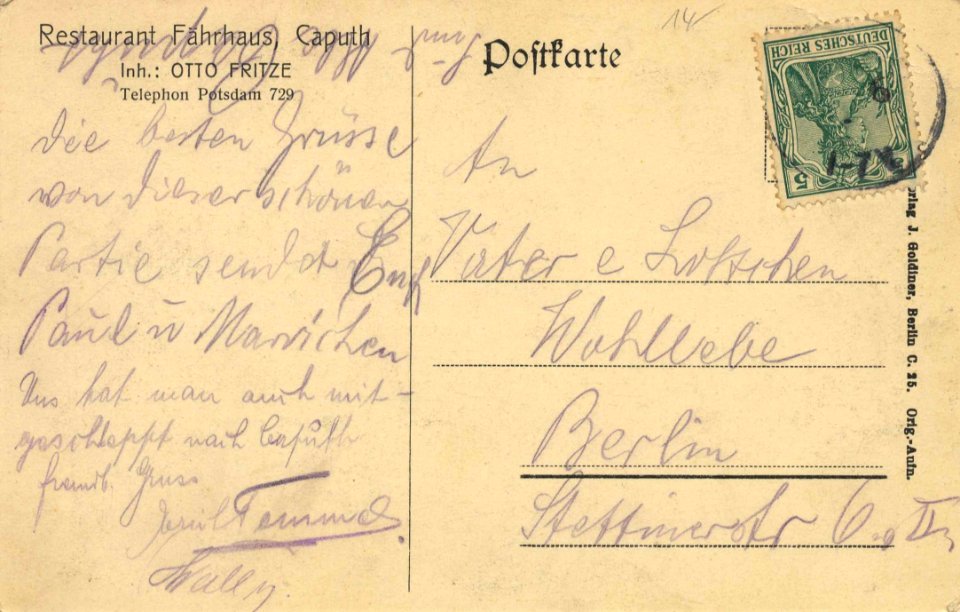 Restaurant Fährhaus, Caputh
Inh.: OTTO FRITZE
Telephon Potsdam 729
die besten Grüsse
von dieser schönen
Partie sendet Euch
Paul u Mariechen
Uns hat man auch mit-
geschleppt nach Caputh
freundl. Gruss
Temme
Wally.
Postkarte
14
DEUTSCHES REICH
5
5
An
Vater e Lottchen
Wohllebe
Berlin
Stettinerstr 6. II
Verlag J. Goldiner, Berlin C. 25. Orig.-Aufn.